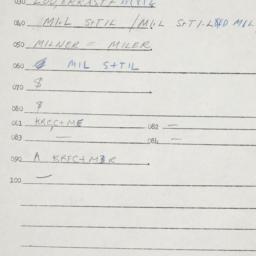 040 MIL S+TIL / MIL S+TIL MIL
050 MILNER = MILER
060 MIL S+TIL
070 $
080 $
081 KREC+ME 082 —
083 — 084 —
090 A KREC+MER
100 —